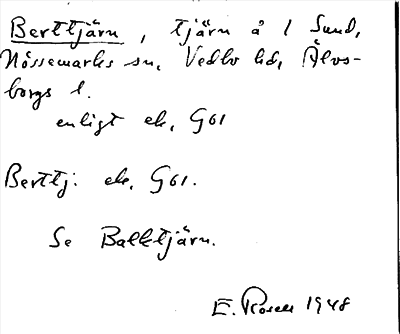 Berttjärn, tjärn å 1 Sund,
Nössemarks sn, Vedbo hd, Älvs-
borgs l.
enligt ek, G61
Berttj: ek, G61.
Se Balktjärn.
E. Rosell 1948